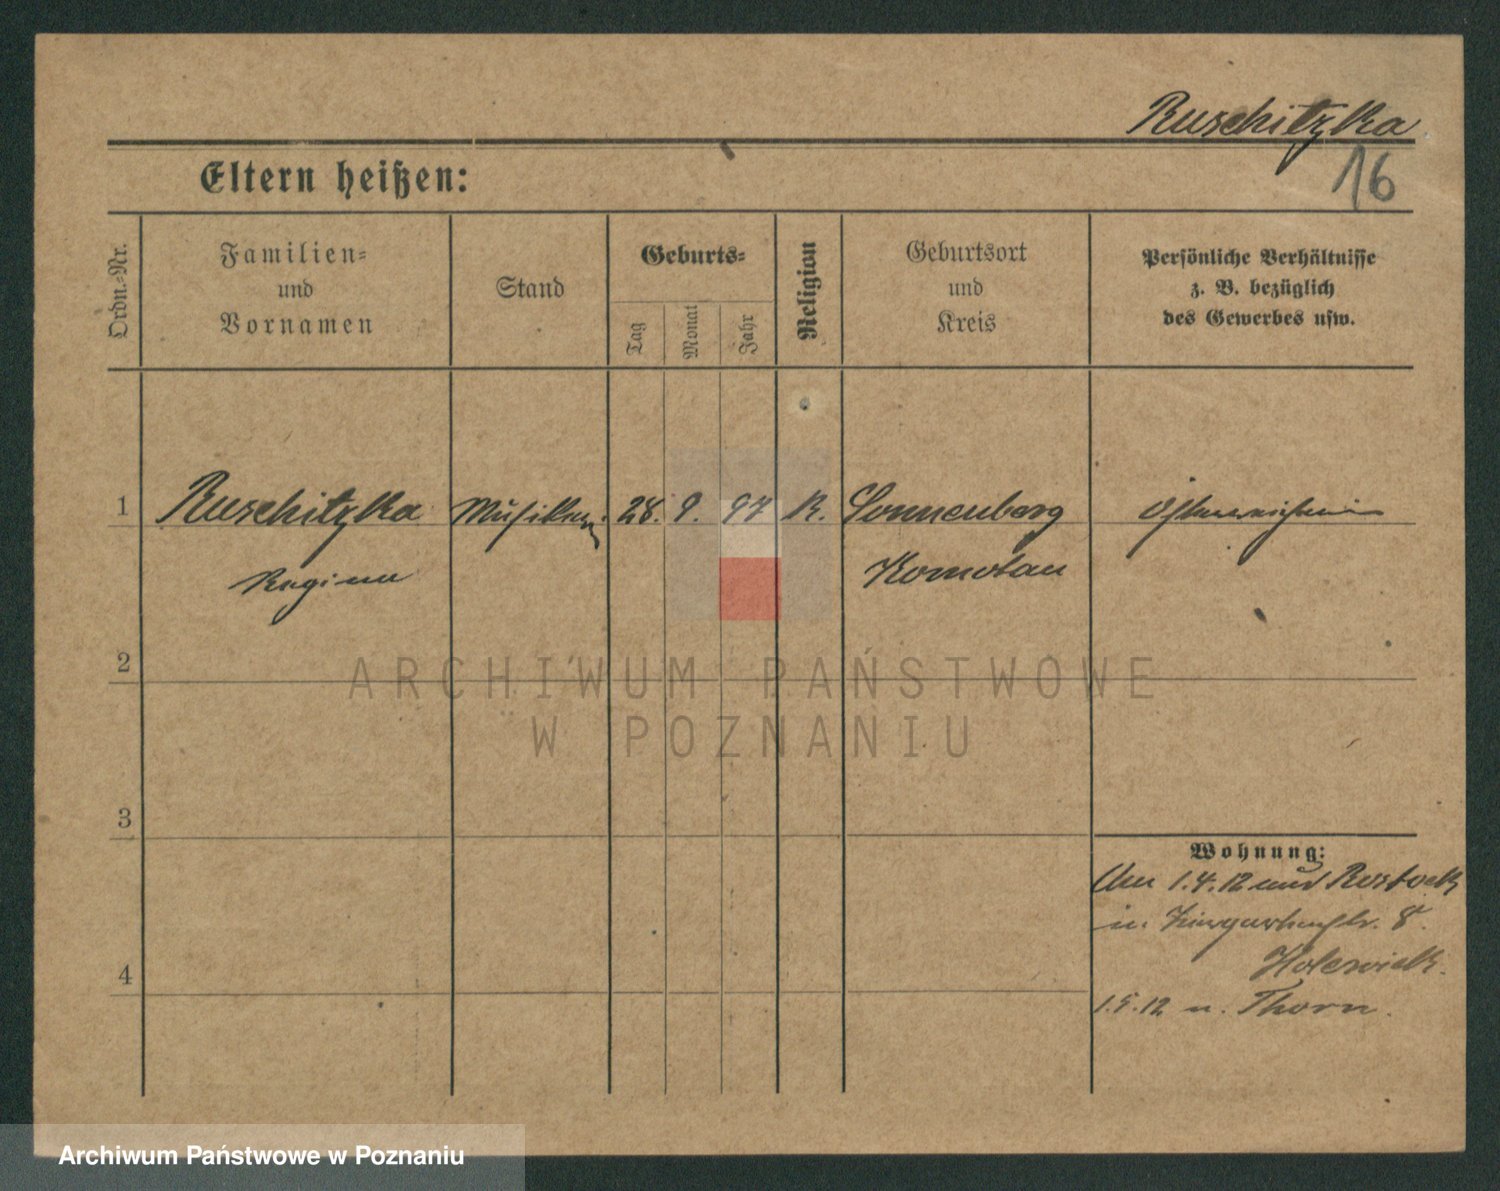 Ruschitzka
16
Eltern heißen:
Ordn.-Nr.
Familien-
und
Vornamen
Stand
Geburts-
Tag
Monat
Jahr
Religion
Geburtsort
und
Kreis
Persönliche Verhältnisse
z. B. bezüglich
des Gewerbes usw.
1 Ruschitzka 28. 9. 97 R. Sonnenberg Österreicherin
Regina Komotau
2
ARCHIWUM PAŃSTWOWE
W POZNANIU
3
Wohnung:
Am 1.4.12 und Rostock
in 8.
Holeswick.
4
1.5.12 n. Thorn.
Archiwum Państwowe w Poznaniu